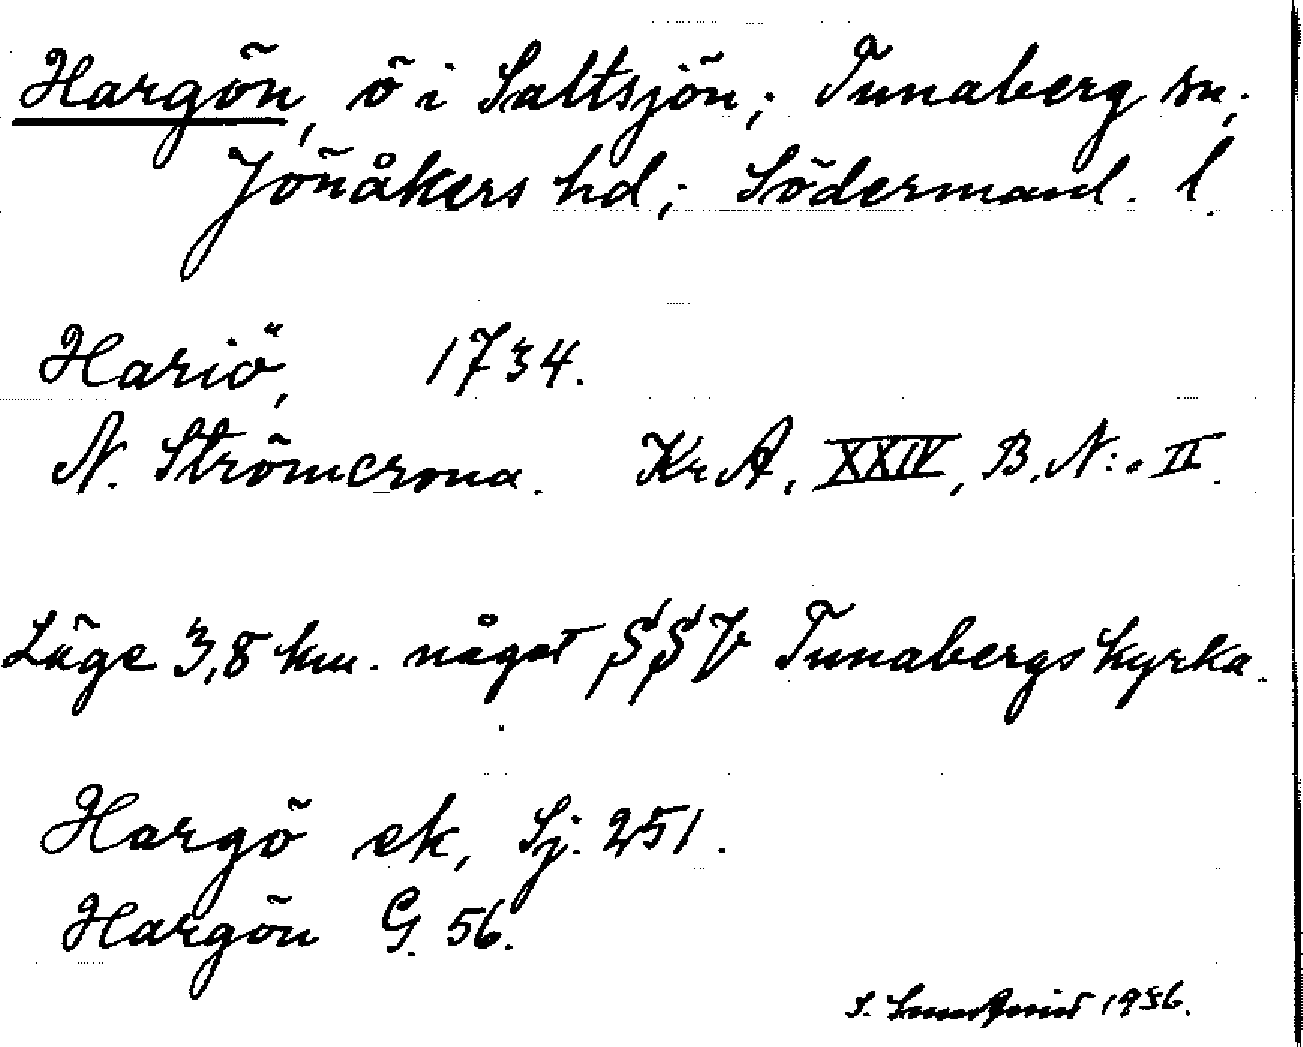 Hargön, ö i Saltsjön; Tunaberg sn;
Jönåkers hd; Södermanl. l.
Hariö, 1734.
N. Strömcrona. Kr A, XXIV, B. N:. II.
Läge 3,8 km. något SSV Tunabergs kyrka.
Hargö ek, Sj. 251.
Hargön G. 56.
S. 1936.